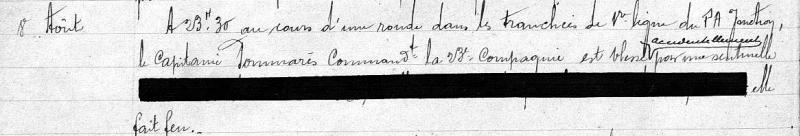 8 Août A 23h.30 au cours d'une ronde dans les tranchées de 1re ligne du PA Jonction,
accidentellement
le Capitaine Pommarès Commandt la 23e Compagnie est blessé par une sentinelle
elle
fait feu._